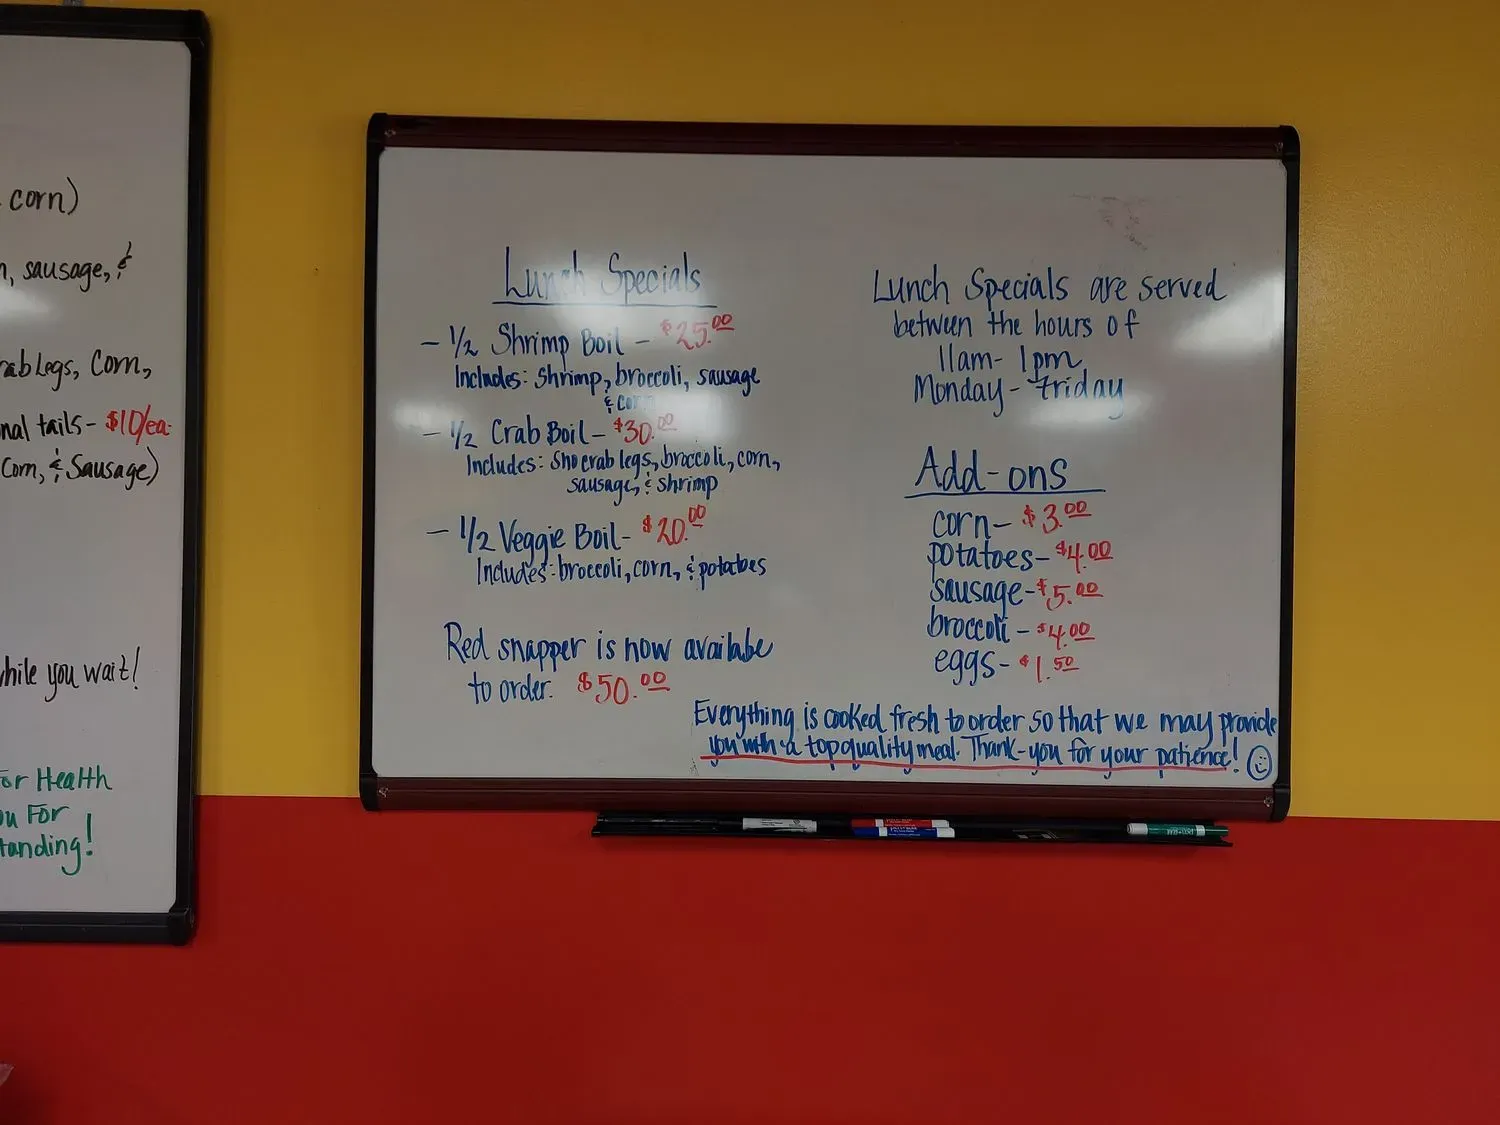 corn)
sausage, &
Legs, Corn,
tails- $10/ea.
Corn, & Sausage)
while you wait!
For Health
You For
Lunch Specials
- 1/2 Shrimp Boil - $25.00
Includes: shrimp, broccoli, sausage
& corn
- 1/2 Crab Boil - $30.00
Includes: Sno crab legs, broccoli, corn,
sausage, & shrimp
- 1/2 Veggie Boil- $20.00
Includes: broccoli, corn, & potatoes
Red snapper is now availabe
to order. $50.00
Lunch Specials are served
between the hours of
11am- 1pm
Monday - Friday
Add-ons
corn- $3.00
potatoes- $4.00
sausage- $5.00
broccoli - $4.00
eggs- $1.50
Everything is cooked fresh to order so that we may provide
you with a top quality meal. Thank-you for your patience!